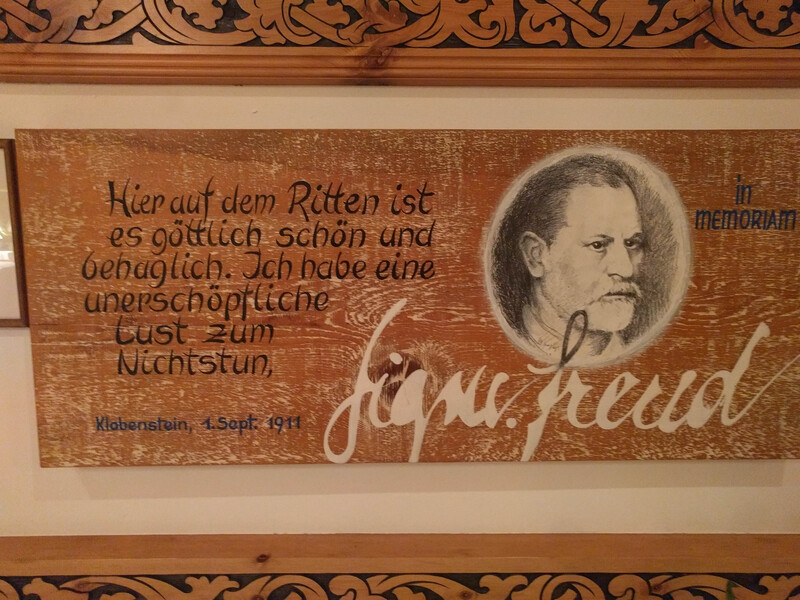 Hier auf dem Ritten ist
es göttlich schön und
behaglich. Ich habe eine
unerschöpfliche
Lust zum
Nichtstun,
Klobenstein, 1. Sept. 1911
Sigm. Freud
in
MEMORIAM